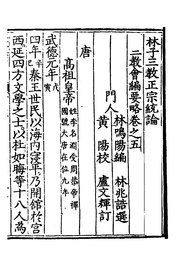 林子三教正宗統論
三教會編要略卷之五
門人
林鳴陽編
黃陽校
林兆誥選
盧文輝訂
唐
高祖皇帝
姓李名淵受周恭帝禪
國號大唐在位九年
武德元年戊寅
四年辛巳秦王世民以海內寖平乃開館於宮
西延四方文學之士以杜如晦等十八人為